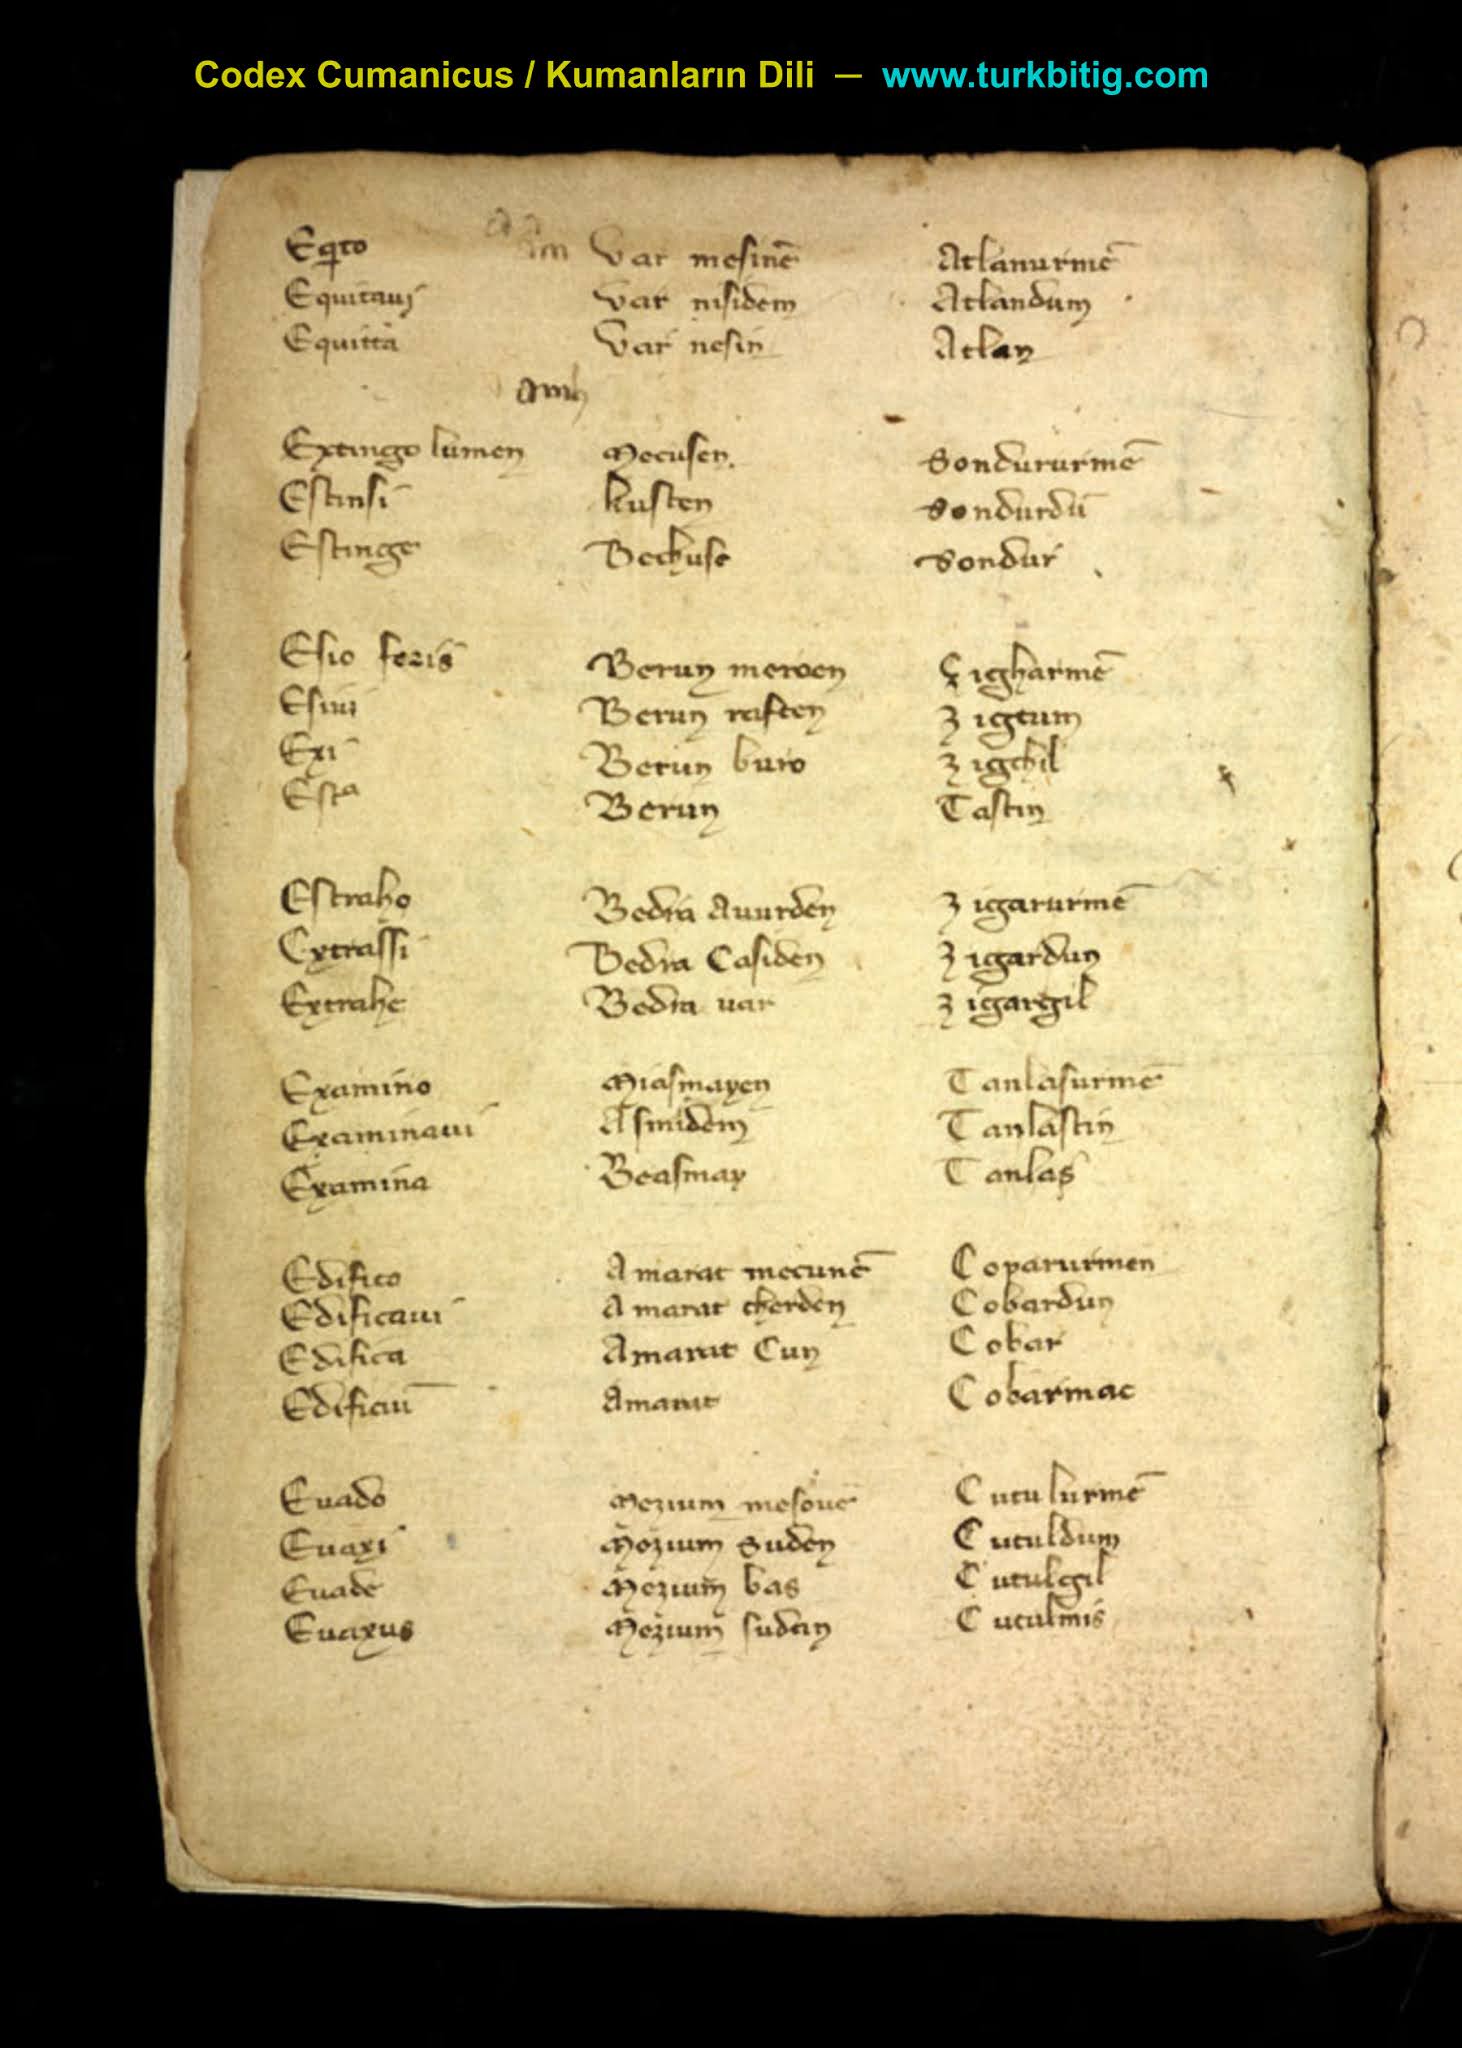 Codex Cumanicus / Kumanların Dili — www.turkbitig.com
Eqito var mesinē Atlanurmē
Equitaui var nisidem Atlandum
Equita var nesin Atlan
Extingo lumen Mecusen Sondururmē
Estinsi kusten Sondurdū
Estinge Beckuse Sondur
Esio foris Berun meroen çigharmē
Esiui Berun raften zigtum
Exi Berun buro zigchil
Esta Berun Tastin
Estraho Bedra Auurden zigarurmē
Extrassi Bedra Casiden zigardun
Extrahe Bedra uar zigargil
Examino Miasmayen Tanlasurmē
Examinaui Asmidem Tanlastin
Examina Beasmay Tanlas
Edifico Amarat mecunē Coparurmen
Edificaui Amarat cherden Cobardun
Edifica Amarat Cun Cobar
Edificiū Amarat Cobarmac
Euado Mezium mesouē Cutulurmē
Euaxi Mozium suden Cutuldum
Euade Mezium bas Cutulgil
Euaxus Mezium sudan Cutulmis